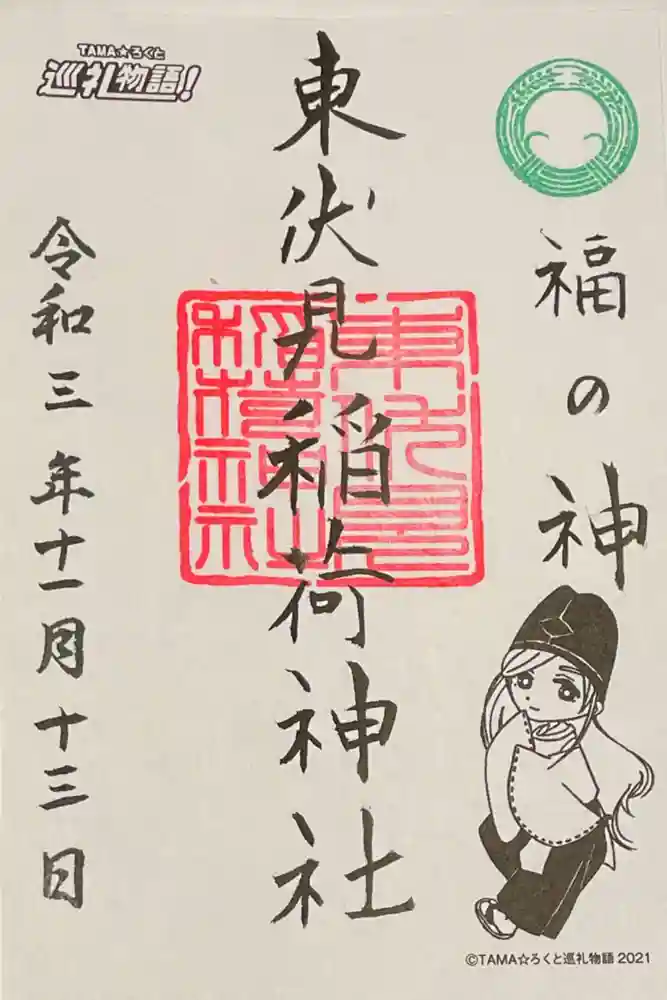 TAMA☆ろくと
巡礼物語!
福の神
東伏見稲荷神社
令和三年十一月十三日
©TAMA☆ろくと巡礼物語 2021